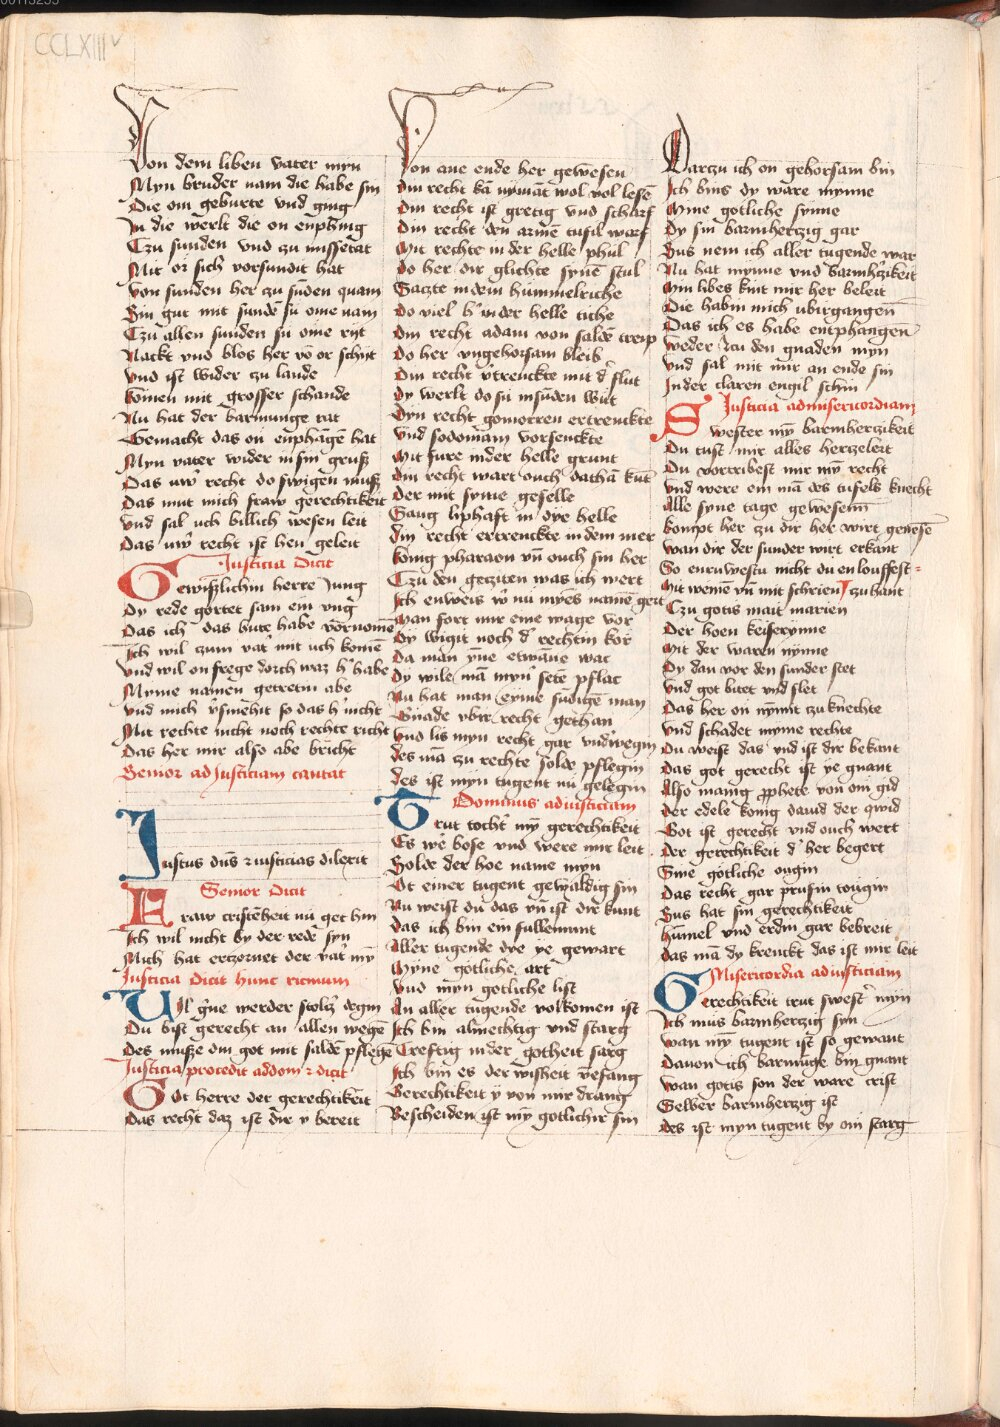 CCLXIIIv
Von dem liben vater myn
Myn bruder nam die habe sin
Die om geburte vnd ging
In die werlt die on enphing
Czu sunden vnd zu missetat
Mit or sich vorsundit hat
Von sunden her zu sūden quam
Sin gut mit sunde su ome nam
Czu allen sunden su ome riit
Nackt vnd blos her vō or schiit
Vnd ist wider zu lande
komen mit grosser schande
Nu hat der barmunge rat
Gemacht das on enphāgē hat
Myn vater wider in sin gruß
Das uwr recht do swigen muß
Das mut mich fraw gerechtikeit
Vnd sal uch billich wesen leit
Das uwr recht ist hen geleit
Justicia Dicit
Gewißlichin herre Jung
Dy rede gortet sam ein vng
Das ich das hute habe vornomē
Ich wil zum vatr mit uch komē
Vnd wil on frege dorch waz hr habe
Myme namen getretin abe
Vnd mich vrsmehit so das hr nicht
Mit rechte nicht noch rechte richt
Das her mir also abe bricht
Senior ad Justiciam cantat
Justus dūs & iusticias dilexit
Senior Dicit
Fraw cristēheit nu get hin
Ich wil nicht by der rede syn
Mich hat erczornet der vatr my
Justicia Dicit hunc ricmum
Vil grne werder stolz degin
Du bist gerecht an allen wegē
Des muße din got mit saldē pflegē
Justicia procedit ad dom & dicit
Got herre der gerechtikeit
Das recht daz ist dir y bereit
Von ane ende her gewesen
Din recht kā nymāt wol vol lesē
Din recht ist gretig vnd scharf
Din recht den armē tufil warf
Mit rechte in der helle phul
Do her dir glichte synē stul
Saczte in dem hummelriche
Do viel hr in der helle tiche
Din recht adam von saldē treip
Do her vngehorsam bleib
Din recht vrtrenckte mit dr flut
Dy werlt do su in sunden wut
Dyn recht gomorren ertrenckte
Vnd sodomam vorsenckte
Mit fure in der helle grunt
Din recht wart ouch dathā kūt
Der mit syme geselle
Sang liphaft in dye helle
Din recht ertrenckte in dem mer
konig pharaon vn ouch sin her
Czu den gecziten was ich wert
Ich enweis wr nu mynes namē gert
Man fort mir eine wage vor
Dy wigit noch dr rechtin kor
Da man yne etwāne wac
Dy wile mā mynr sete pflac
Nu hat man eyme sūdigē man
Gnade vbir recht gethan
Vnd lis myn recht gar vndrwegin
Des mā zu rechte solde pflegin
Des ist myn tugent nu gelegin
Dominus ad iusticiam
Trut tochtr my gerechtikeit
Es we bose vnd were mir leit
Solde der hoe name myn
Ot einer tugent gewaldig sin
Nu weist du das vn ist dir kunt
Das ich bin ein fullemunt
Aller tugende dye ye gewart
Myne gotliche art
Vnd myn gotliche list
An aller tugende volkomen ist
Ich bin almechtig vnd starg
Creftig in der gotheit sarg
Ich bin es der wisheit vefang
Gerechtikeit y von mir drang
Bescheiden ist my gotlichir sin
Darczu ich on gehorsam bin
Ich bins dy ware mynne
Mine gotliche synne
Dy sin barmhertzig gar
Sus nem ich aller tugende war
Nu hat mynne vnd barmhrzikeit
Min libes kint mir her beleit
Die habin mich vbirgangen
Das ich es habe entphangen
weder In den gnaden myn
Vnd sal mit mir an ende sin
In der claren engil schin
Justicia ad misericordiam
Swester my barmherzikeit
Du tust mir alles herzeleit
Du vortribest mir my recht
Vnd were ein mā des tufels knecht
Alle syne tage gewesenn
kompt her zu dir her wirt genesē
wan dir der sunder wirt erkant
So enruwestu nicht du en louffest
Mit weinē vn mit schrien zu hant
Czu gotis mait marien
Der hoen keiserynne
Mit der waren mynne
Dy dan vor den sunder stet
Vnd got bitet vnd flet
Das her on nymit zu knechte
Vnd schadet myme rechte
Du weist das vnd ist dir bekant
Das got gerecht ist ye gnant
Also manig prophete von om gid
Der edele konig dauid der qwid
Got ist gerecht vnd ouch wert
Der gerechtikeit dr her begert
Sine gotliche ougin
Das recht gar prufin tougin
Sus hat sin gerechtikeit
Humel vnd erdin gar bebreit
Das mā dy krenckt das ist mir leit
Misericordia ad iusticiam
Gerechtikeit trut swestr myn
Ich mus barmherzig syn
wan my tugent ist so gewant
Dauon ich barmūge bin gnant
wan gotis son der ware crist
Selber barmherzig ist
Des ist myn tugent by om starg